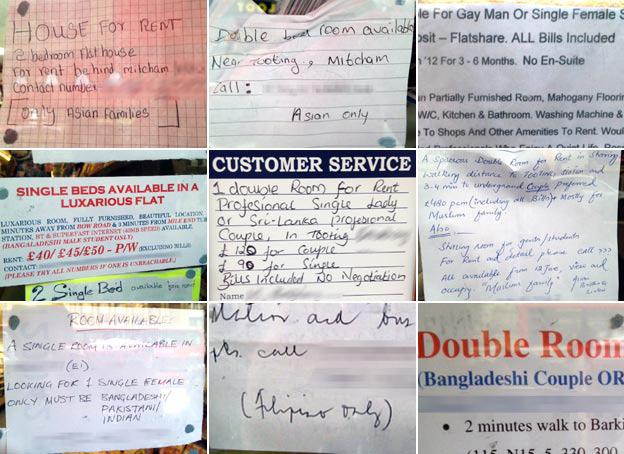 HOUSE FOR RENT
2 bedroom flat house
For rent behind mitcham
Contact number
Only Asian Families
Double bed room available
Near Tooting, Mitcham
Call:
Asian only
le For Gay Man Or Single Female S
osit – Flatshare. ALL Bills Included
'12 For 3 - 6 Months. No En-Suite
n Partially Furnished Room, Mahogany Floorin
W/C, Kitchen & Bathroom. Washing Machine &
To Shops And Other Amenities To Rent. Would
SINGLE BEDS AVAILABLE IN A
LUXARIOUS FLAT
LUXARIOUS ROOM, FULLY FURNISHED, BEAUTIFUL LOCATION,
MINUTES AWAY FROM BOW ROAD & 3 MINUTES FROM MILE END TUB
STATION, BT & SUPERFAST INTERNET (40MB SPEED) AVAILABLE.
(BANGLADESHI MALE STUDENT ONLY)
RENT: £40/ £45/£50 - P/W (EXCLUDING BILLS)
CONTACT:
(PLEASE TRY ALL NUMBERS IF ONE IS UNREACHABLE.)
2 Single Bed available for rent
CUSTOMER SERVICE
1 double Room for Rent
Profesional Single Lady
or Sri-Lanka profesional
Couple, in Tooting
£120 for Couple
£90 for Single
Bills Included No Negotiation
Name
A spacious Double Room for Rent in Sharing
walking distance to Tooting station and
3-4 min to underground Couple preferred
£480 pcm (including all Bills) Mostly for
Muslim family.
Also
Sharing room for gents/students
For Rent and detail please call >>>
All available from 12 June, view and
occupy. "Muslim family"
ROOM AVAILABLE
A SINGLE ROOM IS AVAILABLE IN
(E1)
LOOKING FOR 1 SINGLE FEMALE
ONLY MUST BE BANGLADESHI/
PAKISTANI/
INDIAN
Station and bus
pls. call
(Filipino only)
Double Room
(Bangladeshi Couple OR
• 2 minutes walk to Barki